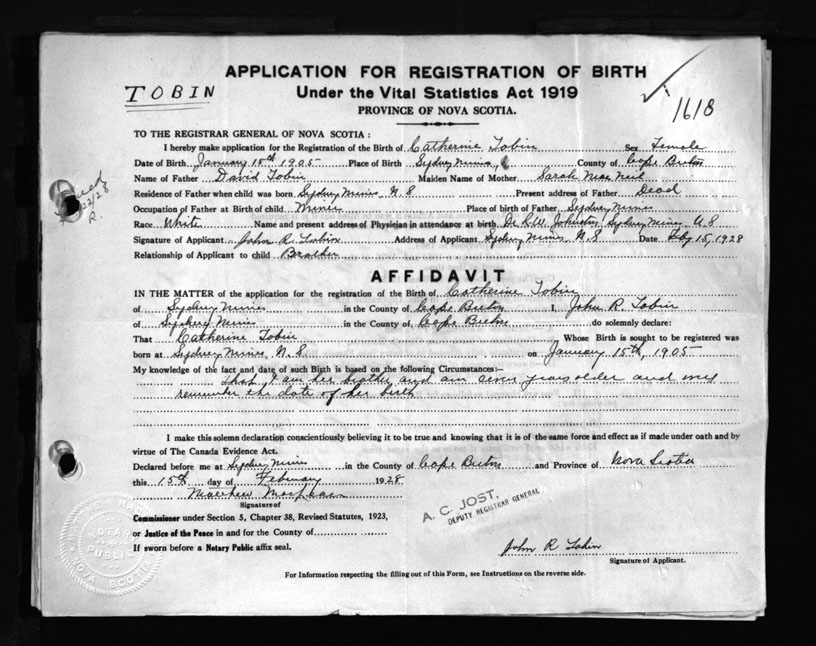 APPLICATION FOR REGISTRATION OF BIRTH
TOBIN
Under the Vital Statistics Act 1919
1618
PROVINCE OF NOVA SCOTIA.
TO THE REGISTRAR GENERAL OF NOVA SCOTIA :
I hereby make application for the Registration of the Birth of Catherine Tobin Sex Female
Date of Birth January 15th 1905 Place of Birth Sydney Mines County of Cape Breton
Name of Father David Tobin Maiden Name of Mother Sarah Mac Neil
Residence of Father when child was born Sydney Mines N.S Present address of Father Dead
Occupation of Father at Birth of child. Miner Place of birth of Father Sydney Mines
Race White Name and present address of Physician in attendance at birth Dr. R.W. Johnston Sydney Mines N.S
Signature of Applicant John R. Tobin Address of Applicant Sydney Mines N.S Date Feby 15, 1928
Relationship of Applicant to child Brother
AFFIDAVIT
IN THE MATTER of the application for the registration of the Birth of Catherine Tobin
of Sydney Mines in the County of Cape Breton I, John R. Tobin
of Sydney Mines in the County of, Cape Breton do solemnly declare:
That Catherine Tobin Whose Birth is sought to be registered was
born at Sydney Mines N.S. on January 15th, 1905
My knowledge of the fact and date of such Birth is based on the following Circumstances:—
That I am her brother and am seven years older and
remember the date of her birth
I make this solemn declaration conscientiously believing it to be true and knowing that it is of the same force and effect as if made under oath and by
virtue of The Canada Evidence Act.
Declared before me at Sydney Mines in the County of Cape Breton and Province of Nova Scotia
this 15th day of February 1928
Signature of
Commissioner under Section 5, Chapter 38, Revised Statutes, 1923,
or Justice of the Peace in and for the County of
If sworn before a Notary Public affix seal.
A. C. JOST,
DEPUTY REGISTRAR GENERAL
John R Tobin
Signature of Applicant.
NOTARY PUBLIC
NOVA SCOTIA
For Information respecting the filling out of this Form, see Instructions on the reverse side.